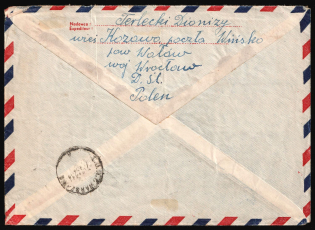 Nadawca:
Expéditeur:
Serlecki Dionizy
wieś Kozowa poczta Wińsko
pow Wołów
woj Wrocław
D. Śl.
Polen
WARSZAWA